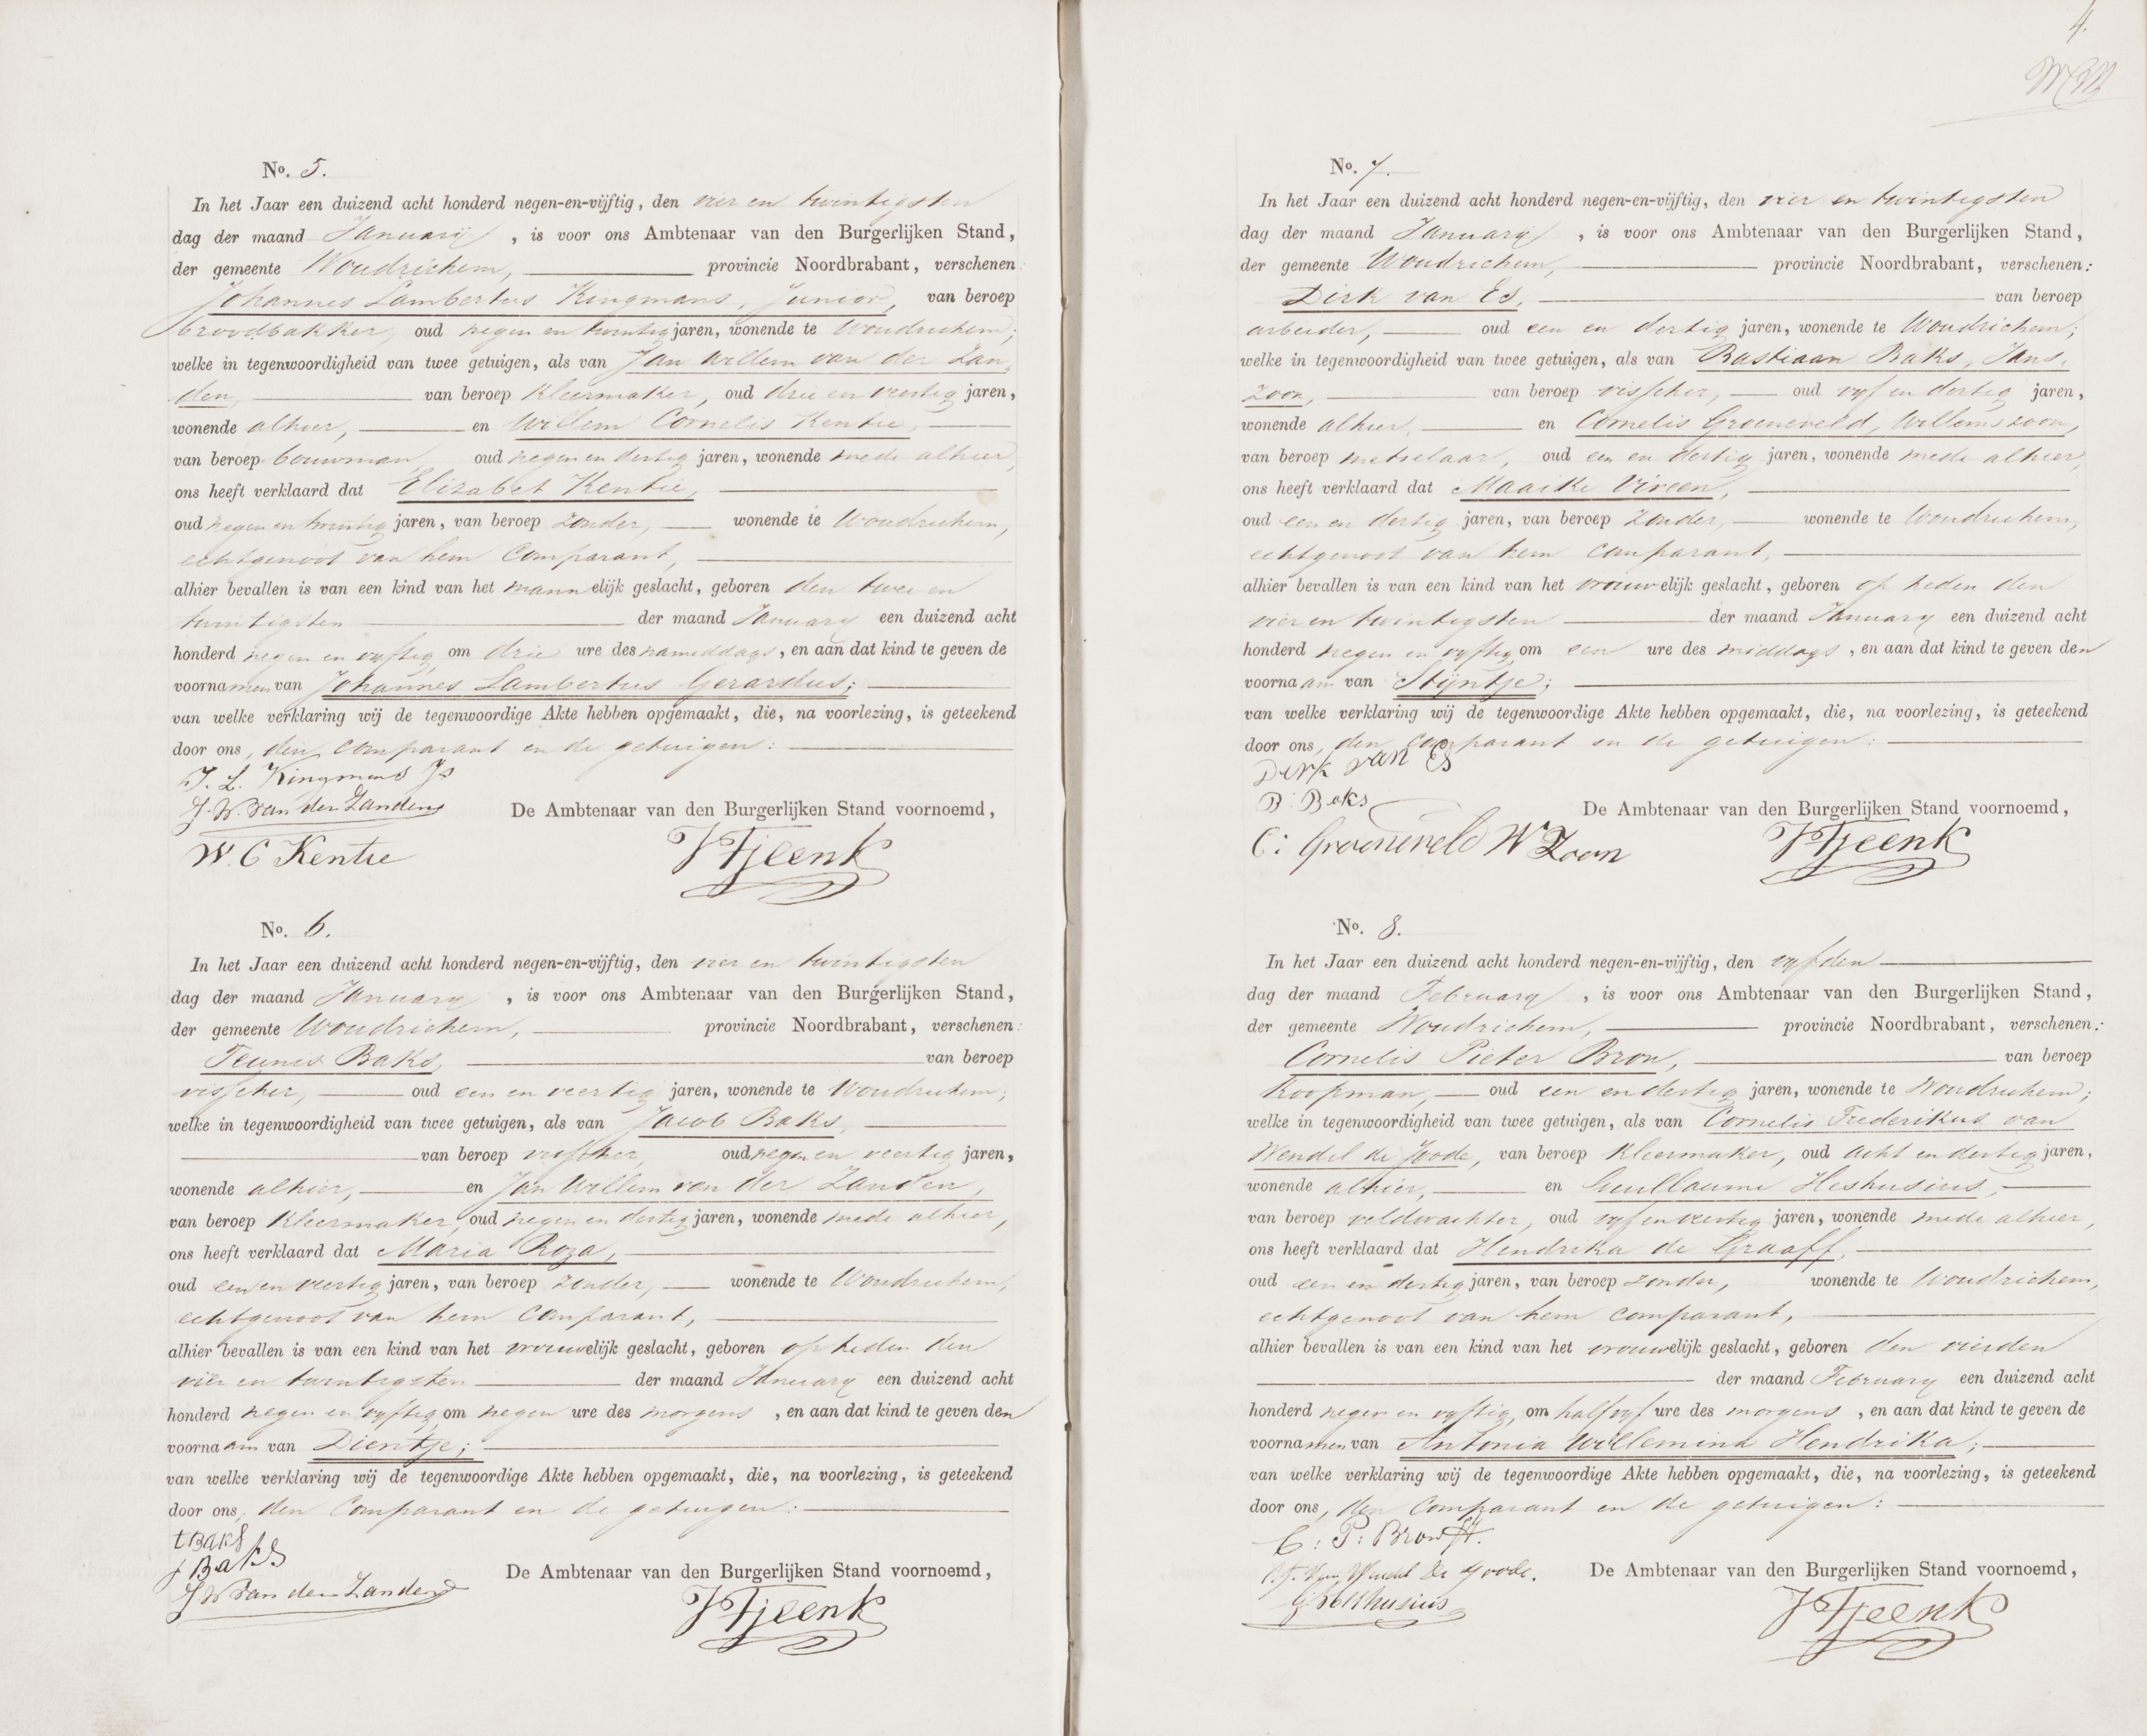 No. 5.
In het Jaar een duizend acht honderd negen-en-vijftig, den vier en twintigsten
dag der maand January, is voor ons Ambtenaar van den Burgerlijken Stand,
der gemeente Woudrichem, provincie Noordbrabant, verschenen:
Johannes Lambertus Kingmans, Junior, van beroep
broodbakker, oud negen en twintig jaren, wonende te Woudrichem;
welke in tegenwoordigheid van twee getuigen, als van Jan Willem van der Zan
den, van beroep kleermaker, oud drie en veertig jaren,
wonende alhier, en Willem Cornelis Kentie,
van beroep bouwman, oud negen en dertig jaren, wonende mede alhier,
ons heeft verklaard dat Elizabet Kentie,
oud negen en twintig jaren, van beroep zonder, wonende te Woudrichem,
echtgenoot van hem Comparant,
alhier bevallen is van een kind van het mannelijk geslacht, geboren den twee en
twintigsten der maand January een duizend acht
honderd negen en vyftig, om drie ure des nameddags, en aan dat kind te geven de
voornamen van Johannes Lambertus Gerardus;
van welke verklaring wij de tegenwoordige Akte hebben opgemaakt, die, na voorlezing, is geteekend
door ons, den Comparant en de getuigen:
J. L. Kingmans Jr
J. W. van der Zanden
De Ambtenaar van den Burgerlijken Stand voornoemd,
W. C Kentie
Tjeenk
No. 6.
In het Jaar een duizend acht honderd negen-en-vijftig, den vier en twintigsten
dag der maand January, is voor ons Ambtenaar van den Burgerlijken Stand,
der gemeente Woudrichem, provincie Noordbrabant, verschenen:
Teunis Baks, van beroep
visscher, oud een en veertig jaren, wonende te Woudrichem;
welke in tegenwoordigheid van twee getuigen, als van Jacob Baks,
van beroep visscher, oud negen en veertig jaren,
wonende alhier, en Jan Willem van der Zanden,
van beroep kleermaker, oud negen en dertig jaren, wonende mede alhier,
ons heeft verklaard dat Maria Roza,
oud een en veertig jaren, van beroep zonder, wonende te Woudrichem,
echtgenoot van hem Comparant,
alhier bevallen is van een kind van het vrouwelijk geslacht, geboren op heden den
vier en twintigsten der maand January een duizend acht
honderd negen en vyftig, om negen ure des morgens, en aan dat kind te geven den
voornaam van Dientje;
van welke verklaring wij de tegenwoordige Akte hebben opgemaakt, die, na voorlezing, is geteekend
door ons, den Comparant en de getuigen:
t Baks
J Baks
De Ambtenaar van den Burgerlijken Stand voornoemd,
J W van der Zanden
Tjeenk
4.
No. 7.
In het Jaar een duizend acht honderd negen-en-vijftig, den vier en twintigsten
dag der maand January, is voor ons Ambtenaar van den Burgerlijken Stand,
der gemeente Woudrichem, provincie Noordbrabant, verschenen:
Dirk van Es, van beroep
arbeider, oud een en dertig jaren, wonende te Woudrichem;
welke in tegenwoordigheid van twee getuigen, als van Bastiaan Baks, Jans,
zoon, van beroep visscher, oud vyf en dertig jaren,
wonende alhier, en Cornelis Groeneveld, Willemszoon,
van beroep metselaar, oud een en dertig jaren, wonende mede alhier,
ons heeft verklaard dat Maaike Vireen,
oud een en dertig jaren, van beroep zonder, wonende te Woudrichem,
echtgenoot van hem comparant,
alhier bevallen is van een kind van het vrouwelijk geslacht, geboren op heden den
vier en twintigsten der maand January een duizend acht
honderd negen en vyftig, om een ure des middags, en aan dat kind te geven den
voornaam van Stijntje;
van welke verklaring wij de tegenwoordige Akte hebben opgemaakt, die, na voorlezing, is geteekend
door ons, den Comparant en de getuigen:
Dirk van Es
B. Baks
De Ambtenaar van den Burgerlijken Stand voornoemd,
C: Groeneveld W Zoon
Tjeenk
No. 8.
In het Jaar een duizend acht honderd negen-en-vijftig, den vyfden
dag der maand February, is voor ons Ambtenaar van den Burgerlijken Stand,
der gemeente Woudrichem, provincie Noordbrabant, verschenen:
Cornelis Pieter Bron, van beroep
koopman, oud een en dertig jaren, wonende te Woudrichem;
welke in tegenwoordigheid van twee getuigen, als van Cornelis Frederikus van
Wendel de Joode, van beroep kleermaker, oud acht en dertig jaren,
wonende alhier, en Guillaume Heshusius,
van beroep veldwachter, oud vyf en veertig jaren, wonende mede alhier,
ons heeft verklaard dat Hendrika de Graaff,
oud een en dertig jaren, van beroep zonder, wonende te Woudrichem,
echtgenoot van hem comparant,
alhier bevallen is van een kind van het vrouwelijk geslacht, geboren den vierden
der maand February een duizend acht
honderd negen en vyftig, om half vyf ure des morgens, en aan dat kind te geven de
voornamen van Antonia Willemina Hendrika;
van welke verklaring wij de tegenwoordige Akte hebben opgemaakt, die, na voorlezing, is geteekend
door ons, den Comparant en de getuigen:
C: P: Bron
C. F. Van Wendel De Joode.
De Ambtenaar van den Burgerlijken Stand voornoemd,
G Heshusius
Tjeenk